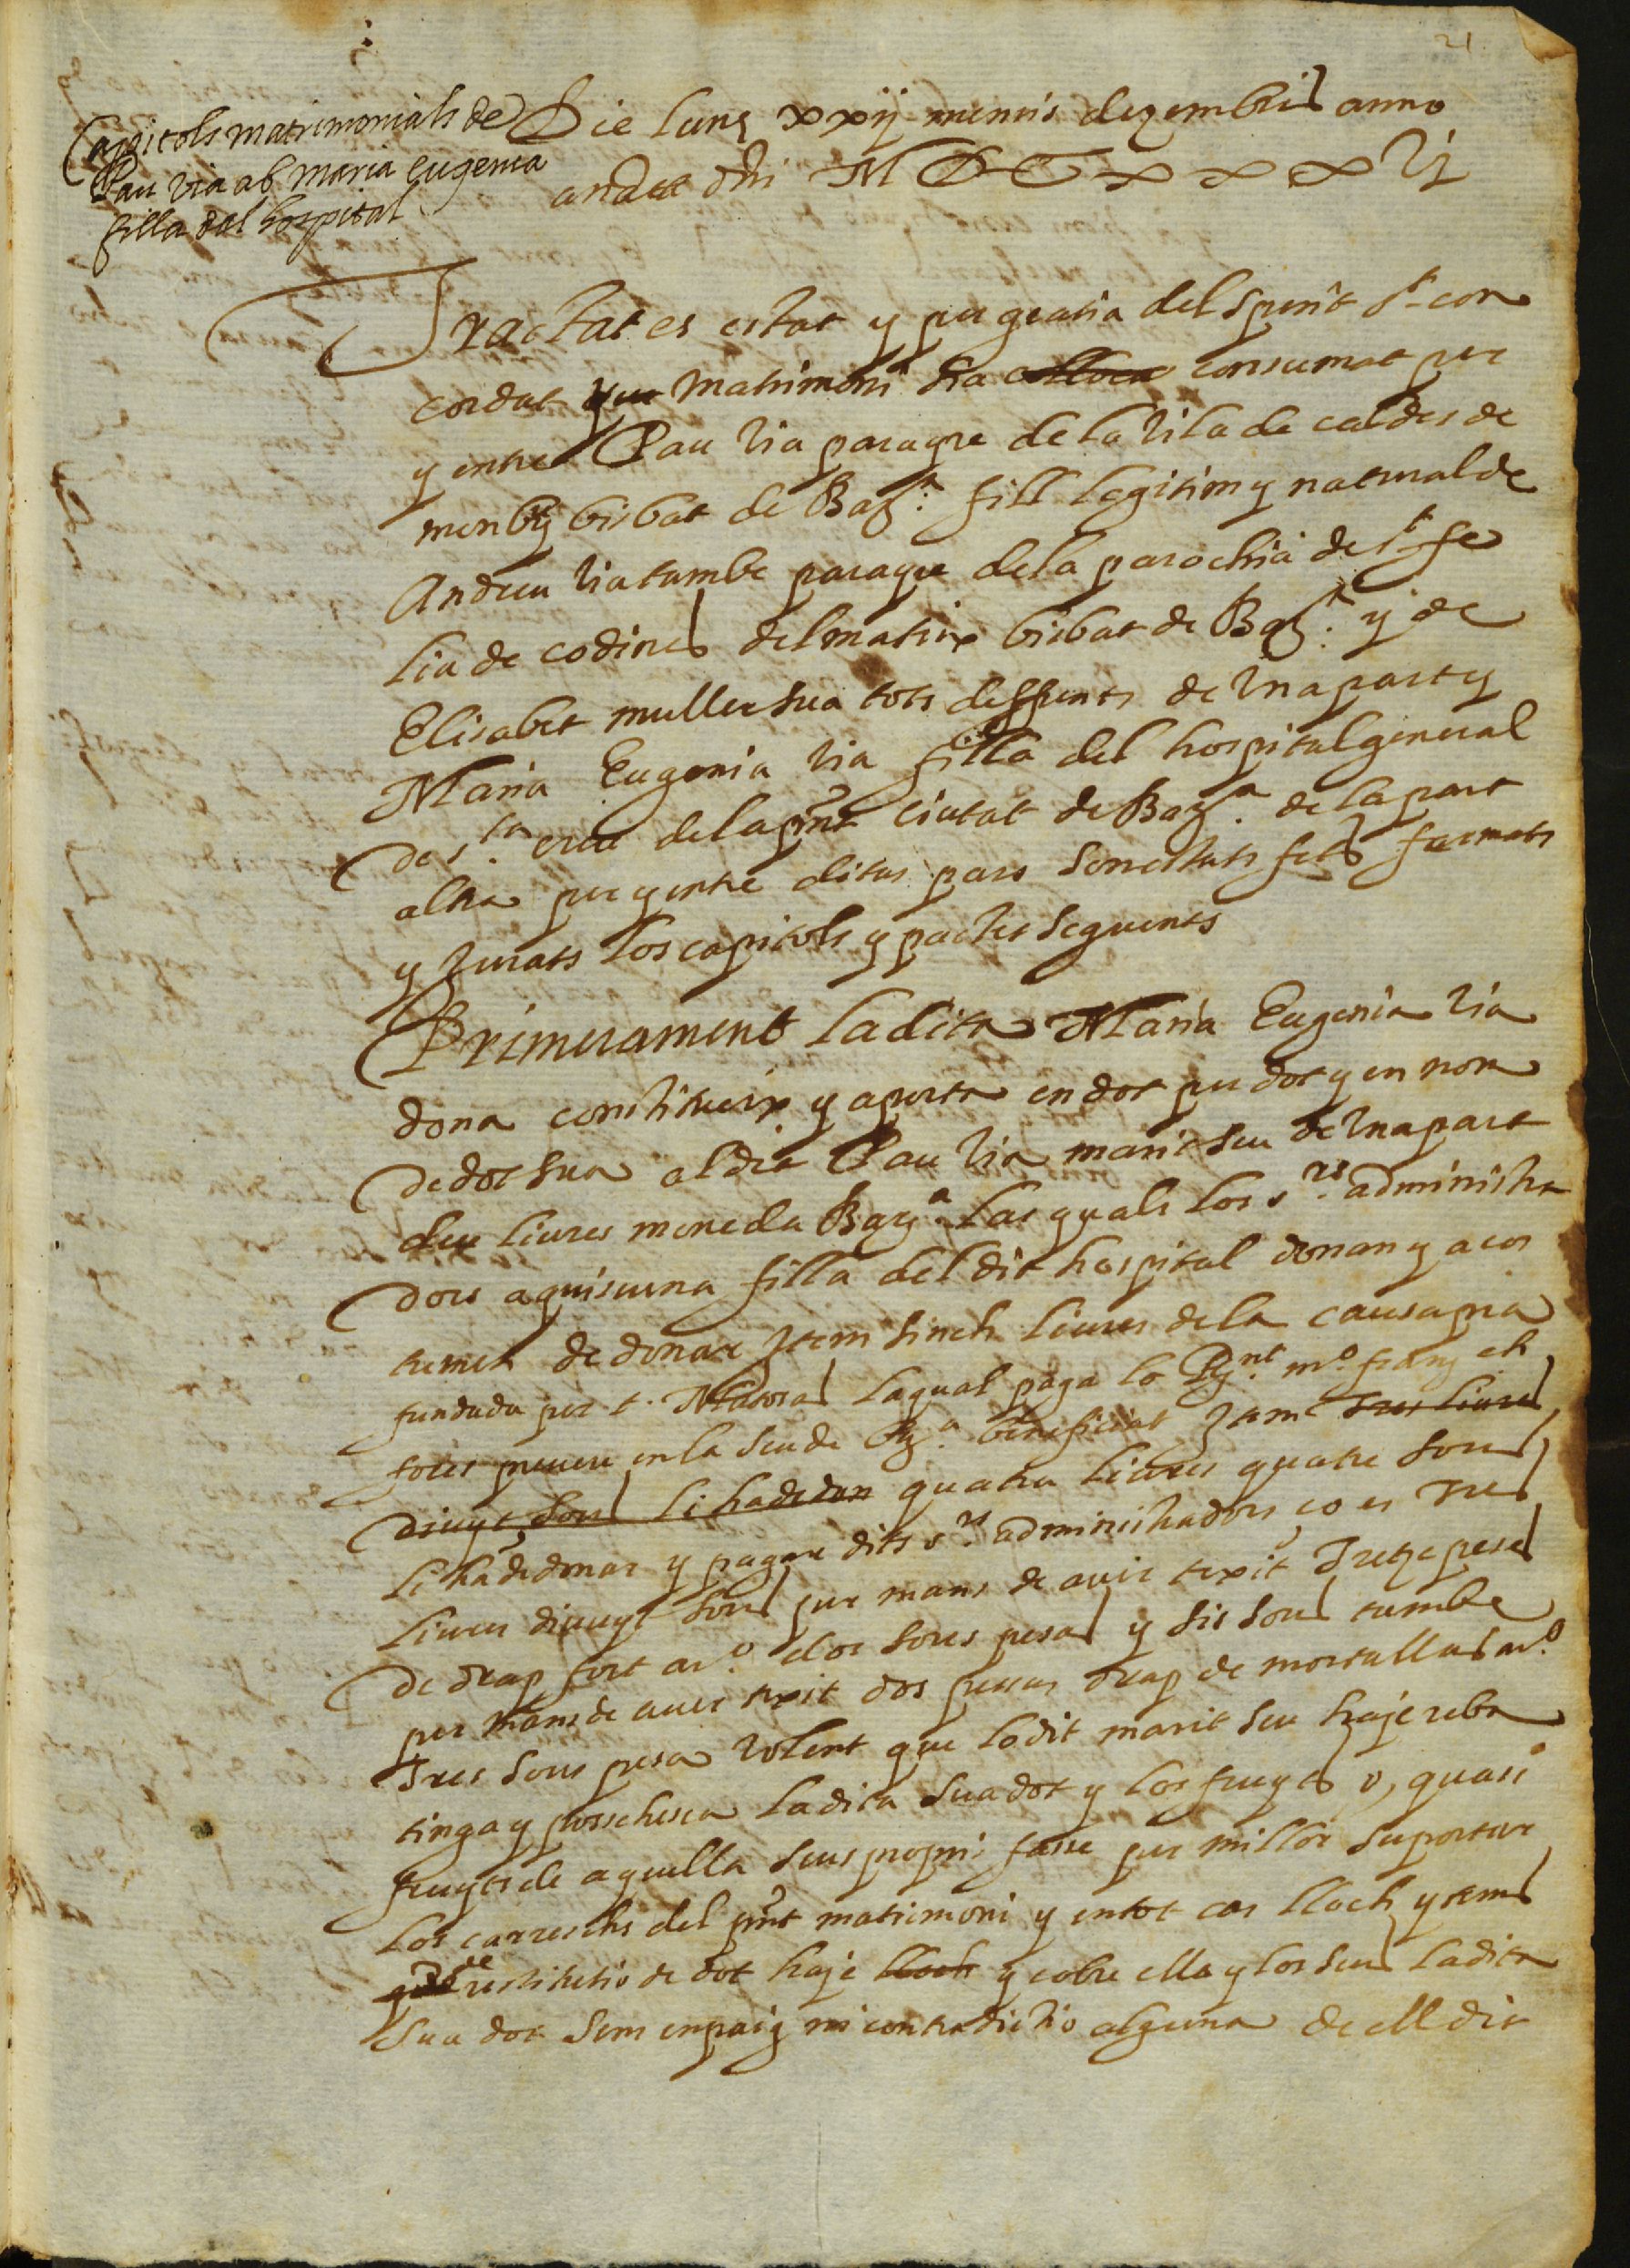 21.
Capitols matrimonials de
Pau Via ab Maria Eugenia
filla del hospital
Die lune xxij mensis dezembris anno
a nat. dñi M DC x x x vj
Tractat es estat y per gratia del sperit st. con
cordat que matrimoni sia colloca consumat per
y entre Pau Via parayre de la vila de caldes de
monbuy bisbat de Barª. fill legitim y natural de
Andreu Via tambe parayre de la parochia de st. fe
liu de codines del matix bisbat de Barª. y de
Elisabet muller sua tots deffunts de vna part y
Maria Eugenia Via filla del hospital general
de sta. creu de la pñt Ciutat de Barª. de la part
altra per y entre ditas pars son estats fets fermats
y jurats los capitols y pactes seguents
Primerament la dita Maria Eugenia Via
dona constitueix y aporta en dot per dot y en nom
de dot sua al dit Pau Via marit seu de vna part
deu liures moneda Barª. las quals los srs. administra
dors a quiscuna filla del dit hospital donan y acos
tuman de donar Item sinch liures de la causa pia
fundada per t. Masora la qual paga lo Rnt. mº. franch
fores prevere en la seu de Bª. beneficiat Item tres liures
divuyt sous li ha de don quatra liures quatre sous
li ha de donar y pagar dits srs. administradors ço es Tres
liures divuyt sous per mans de avir texit Tretze pesas
de drap fort a rº. dos sous pesa y sis sous tambe
per mans de aver texit dos pessas drap de mortallas a rº.
Tres sous pesa Volent que lo dit marit seu haje reba
tinga y possehesca la dita sua dot y los fruyts o, quasi
fruyts de aquella seus propris fasse per millor suportar
los carrechs del pñt matrimoni y en tot cas lloch y temps
de restitutio de dot haje lloch y cobre ella y los seus la dita
sua dot sens enpaig ni contradictio alguna de ell dit